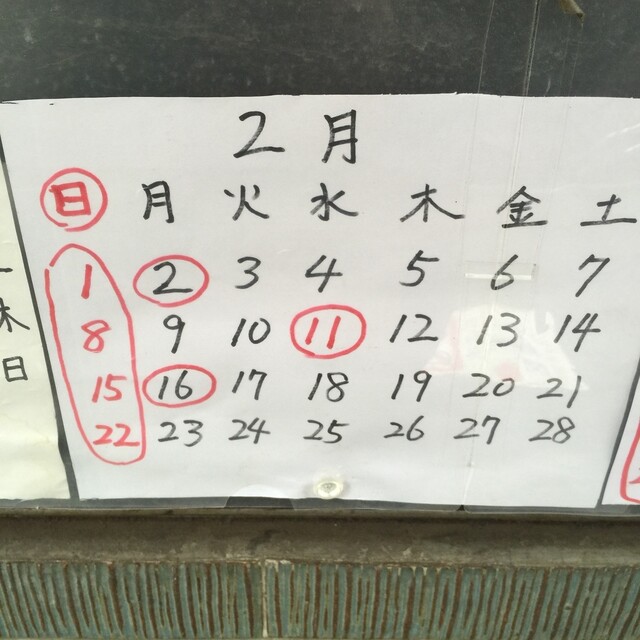 2月
日 月 火 水 木 金 土
1 2 3 4 5 6 7
8 9 10 11 12 13 14
15 16 17 18 19 20 21
22 23 24 25 26 27 28
休
日